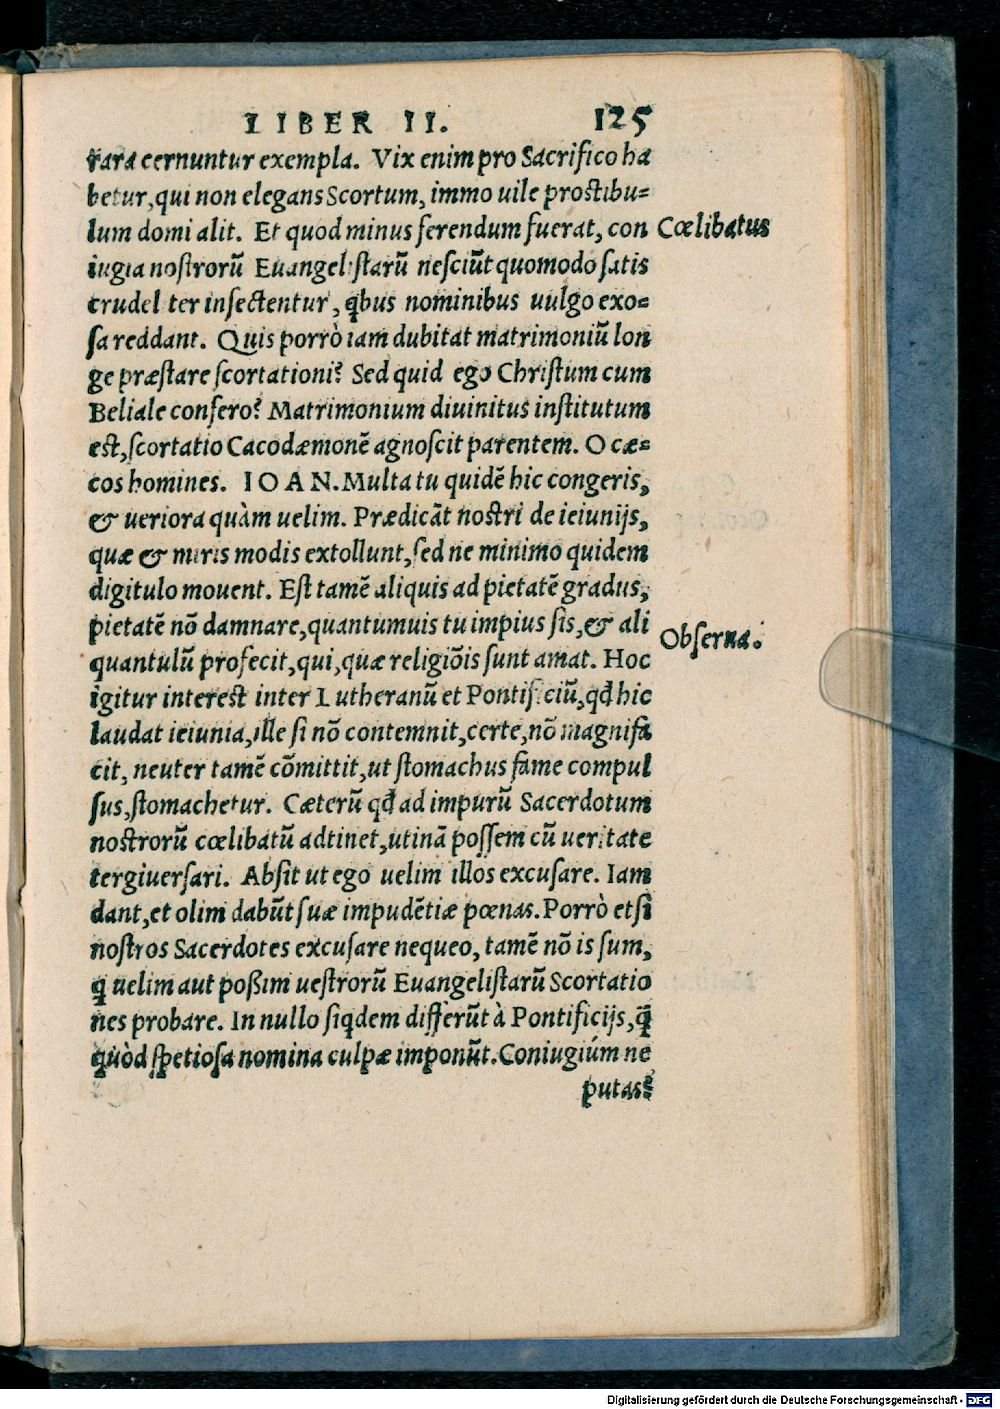 LIBER II. 125
rara cernuntur exempla. Vix enim pro Sacrifico ha
betur, qui non elegans Scortum, immo uile prostibu=
lum domi alit. Et quod minus ferendum fuerat, con Cœlibatus
iugia nostrorũ Euangelistarũ nesciũt quomodo satis
crudeliter insectentur, qbus nominibus uulgo exo=
sa reddant. Quis porrò iam dubitat matrimoniũ lon
ge præstare scortationi? Sed quid ego Christum cum
Beliale confero? Matrimonium diuinitus institutum
est, scortatio Cacodæmonẽ agnoscit parentem. O cæ=
cos homines. IOAN. Multa tu quidẽ hic congeris,
& ueriora quàm uelim. Prædicãt nostri de ieiunijs,
quæ & miris modis extollunt, sed ne minimo quidem
digitulo mouent. Est tamẽ aliquis ad pietatẽ gradus,
pietatẽ nõ damnare, quantumuis tu impius sis, & ali Obserua.
quantulũ profecit, qui, quæ religiõis sunt amat. Hoc
igitur interest inter Lutheranũ et Pontificiũ, qđ hic
laudat ieiunia, ille si nõ contemnit, certe, nõ magnifa
cit, neuter tamẽ cõmittit, ut stomachus fame compul
sus, stomachetur. Cæterũ qđ ad impurũ Sacerdotum
nostrorũ cœlibatũ adtinet, utinã possem cũ ueritate
tergiuersari. Absit ut ego uelim illos excusare. Iam
dant, et olim dabũt suæ impudẽtiæ pœnas. Porrò etsi
nostros Sacerdotes excusare nequeo, tamẽ nõ is sum,
q̃ uelim aut poßim uestrorũ Euangelistarũ Scortatio
nes probare. In nullo siqdem differũt à Pontificijs, q̃
quòd spetiosa nomina culpæ imponũt. Coniugiúm ne
putas:
Digitalisierung gefördert durch die Deutsche Forschungsgemeinschaft - DFG